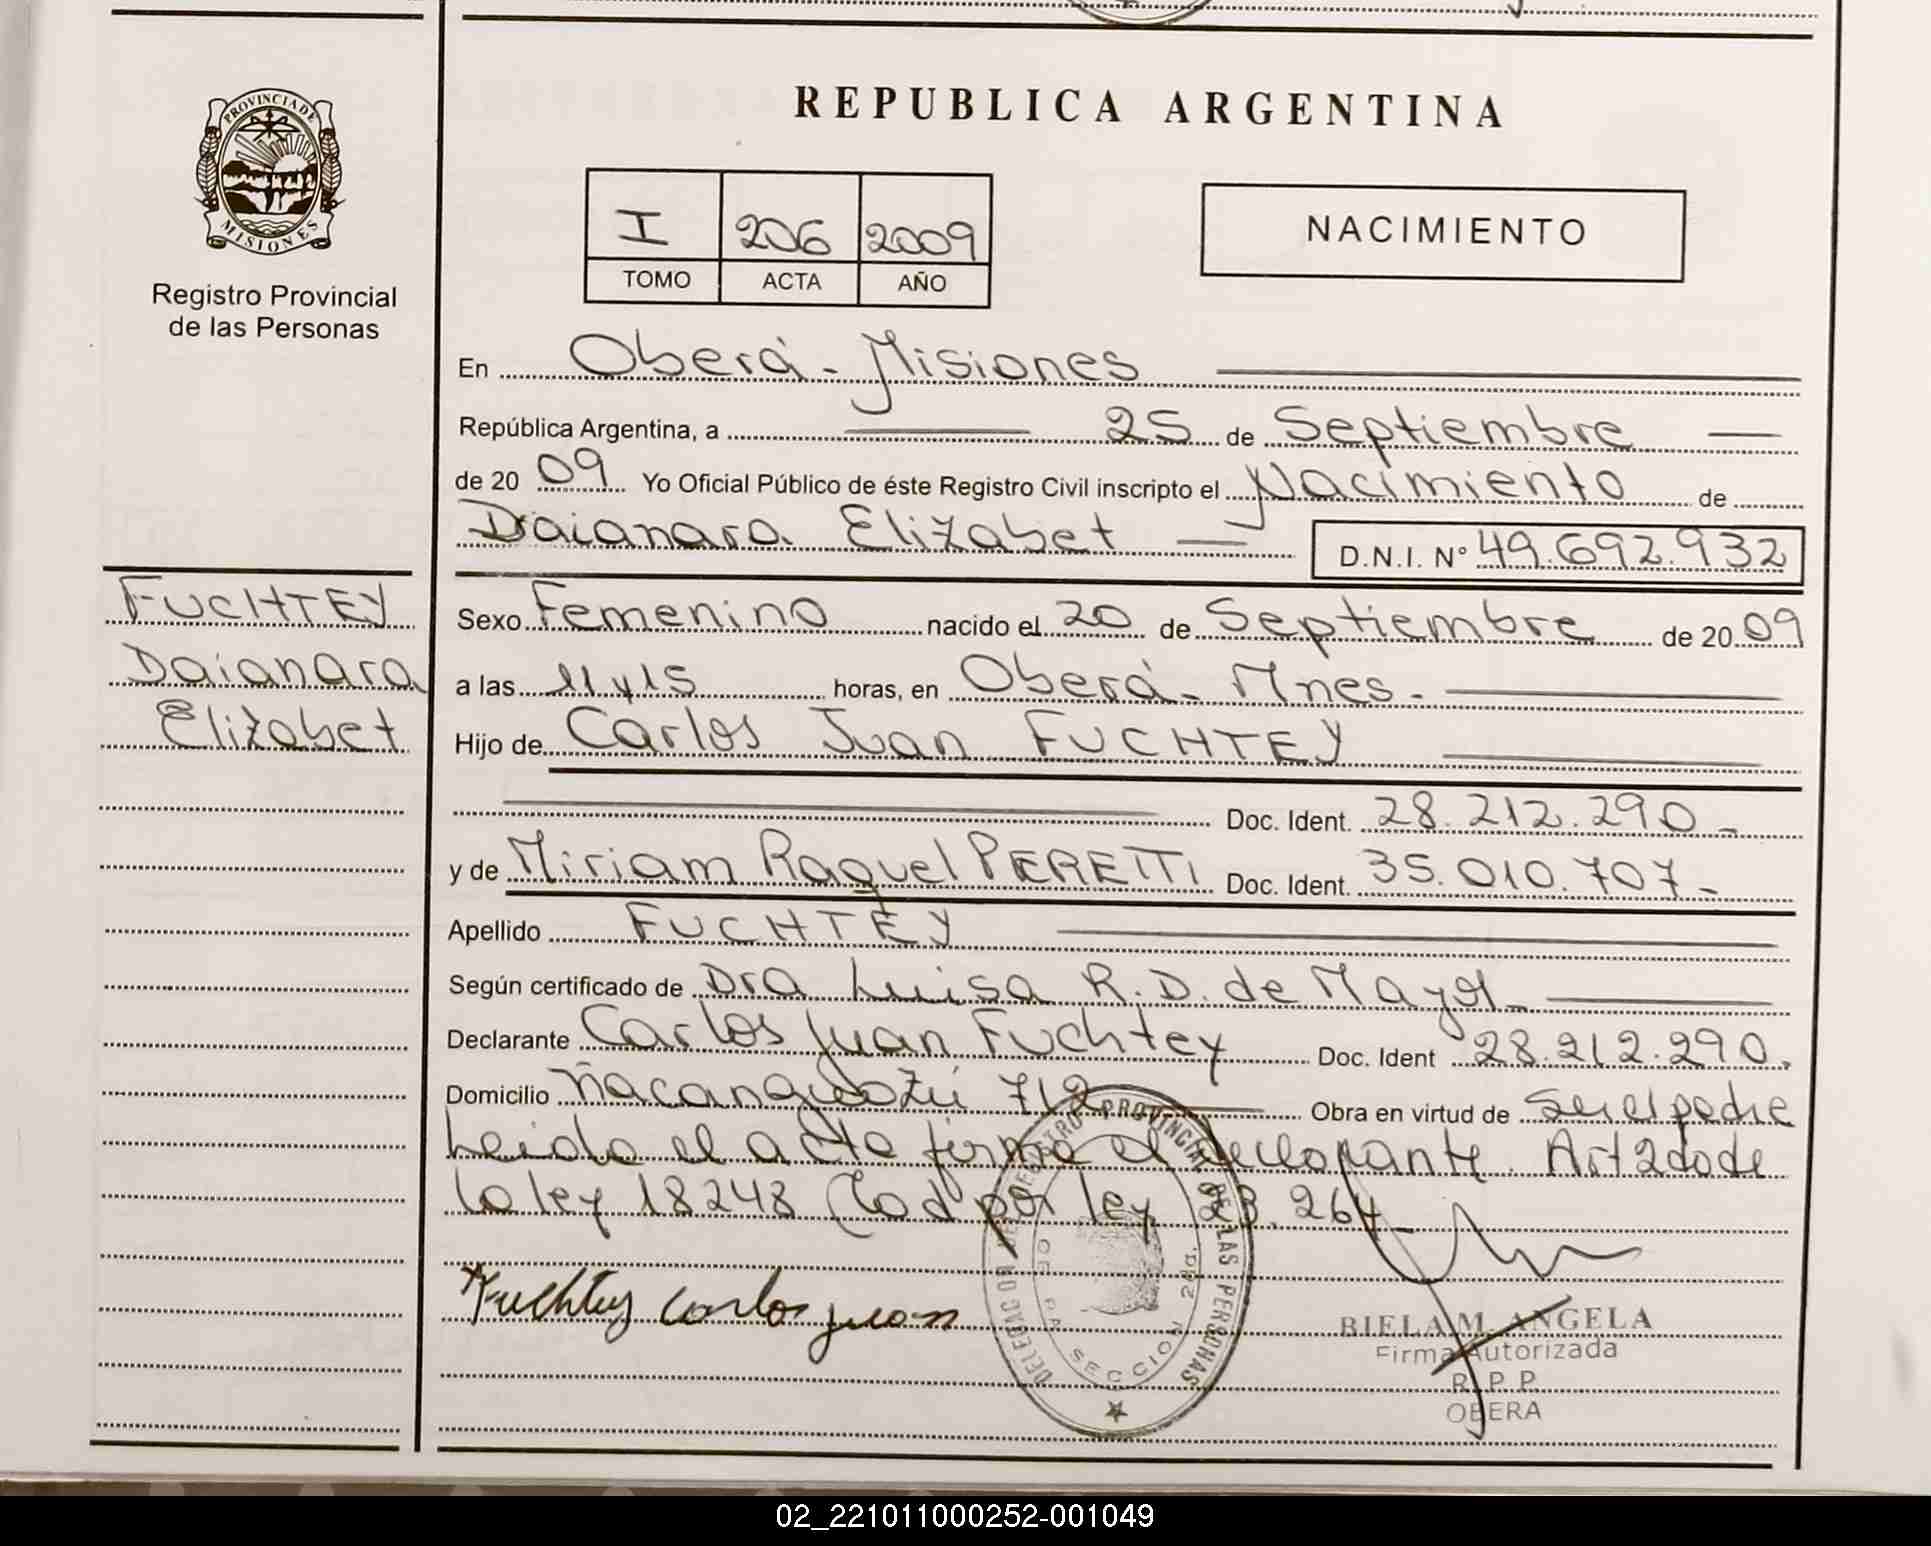 PROVINCIA DE
MISIONES
Registro Provincial
de las Personas
FUCHTEY
Daianara
Elizabet
REPUBLICA ARGENTINA
I 206 2009
TOMO ACTA AÑO
NACIMIENTO
En Oberá - Misiones
República Argentina, a 25 de Septiembre
de 20 09 Yo Oficial Público de éste Registro Civil inscripto el Nacimiento de
Daianara Elizabet D.N.I. N° 49.692.932
Sexo Femenino nacido el 20 de Septiembre de 20 09
a las 11 y 15 horas, en Oberá - Mnes.
Hijo de Carlos Juan FUCHTEY
Doc. Ident. 28.212.290
y de Miriam Raquel PERETTI Doc. Ident. 35.010.707
Apellido FUCHTEY
Según certificado de Dra Luisa R. D. de Mayol
Declarante Carlos Juan Fuchtey Doc. Ident 28.212.290
Domicilio Ñacanguazú 712 Obra en virtud de Ser el padre
Leida el acta firma el declarante. Art 2do de
la ley 18248 Mod por ley 23.264
Fuchtey Carlos Juan
REGISTRO PROVINCIAL DE LAS PERSONAS
SECCION 2da.
BIELA M. ANGELA
Firma Autorizada
R. P. P.
OBERA
02_221011000252-001049